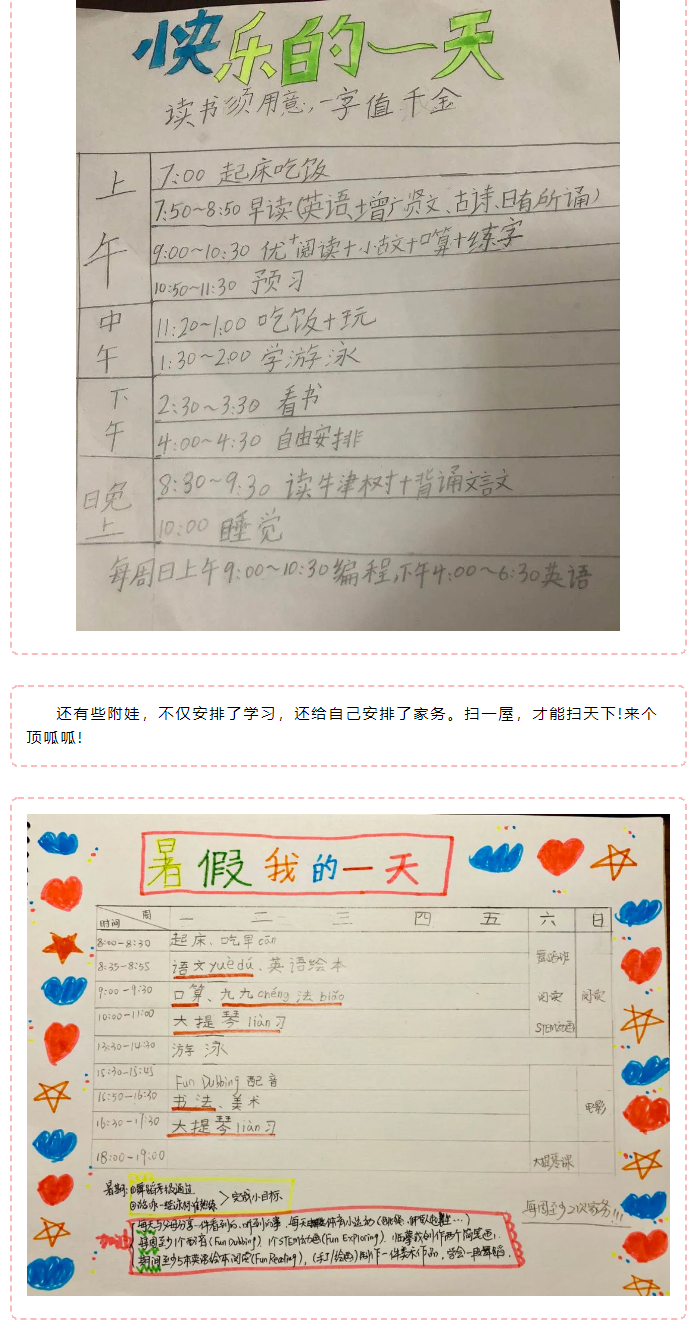 快乐的一天
读书须用意,一字值千金
上午
7:00 起床吃饭
7:50~8:50 早读(英语、增广贤文、古诗、日有所诵)
9:00~10:30 优+阅读+小古文+口算+练字
10:50~11:30 预习
中午
11:20~1:00 吃饭+玩
1:30~2:00 学游泳
下午
2:30~3:30 看书
4:00~4:30 自由安排
晚上
8:30~9:30 读牛津树+背诵文言文
10:00 睡觉
每周日上午9:00~10:30编程,下午4:00~6:30英语
还有些附娃，不仅安排了学习，还给自己安排了家务。扫一屋，才能扫天下!来个
顶呱呱!
暑假我的一天
时间 周 一 二 三 四 五 六 日
8:00-8:30 起床、吃早cān
8:35-8:55 语文yuèdú、英语绘本
9:00-9:30 口算、九九chéng法biǎo
10:00-11:00 大提琴liàn习
阅读 阅读
STEM动画
13:30-14:30 游泳
15:30-15:45 Fun Dubbing 配音
15:50-16:30 书法、美术
电影
16:30-17:30 大提琴liàn习
18:00-19:00 大提琴课
暑期:
完成小目标
每周至少2次家务!!!
加油
每天与父母分享一件看到的、听到的事,每天
每周至少1个配音(Fun Dubbing)、1个STEM动画(Fun Exploring)、临摹或创作两个简笔画.
期间至少5本英语绘本阅读(Fun Reading),(手工/绘画)制作一件美术作品,学会一段舞蹈.